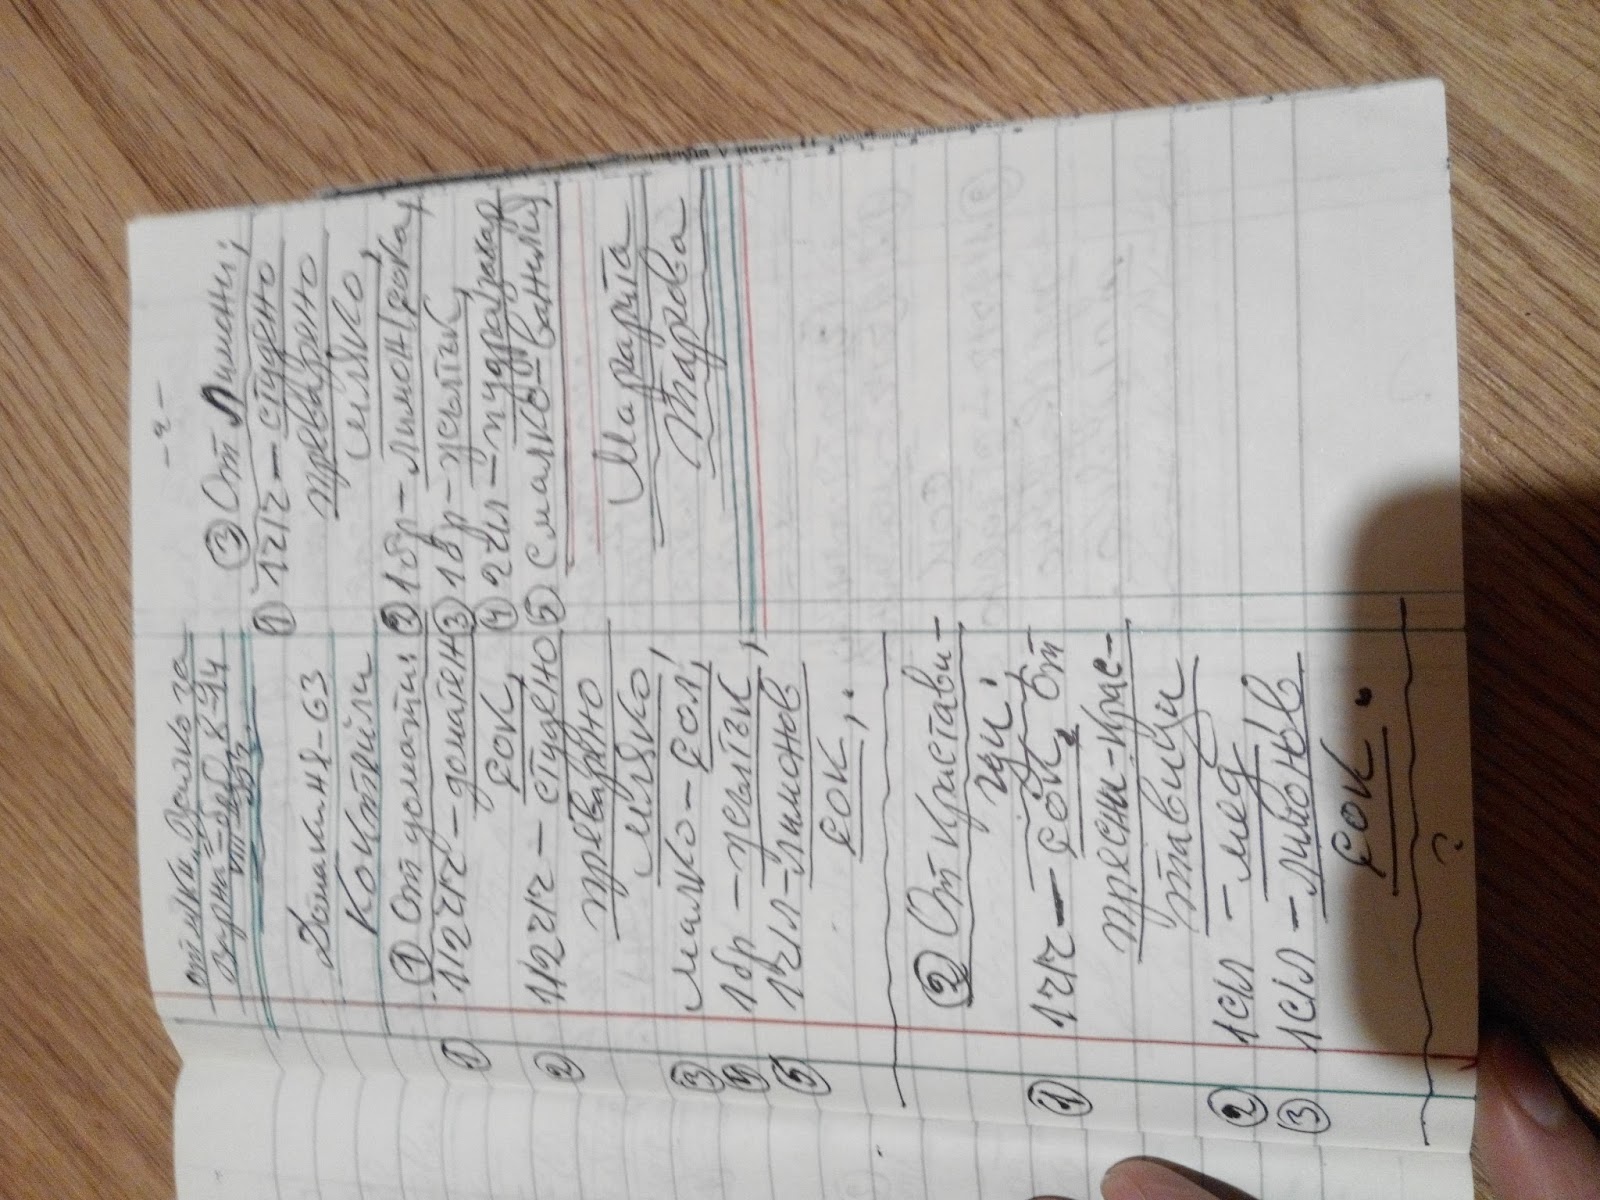 Домакиня-63
Коктейли
① От домати:
① 1/2 ч/ч – доматен
сок,
② 1/2 ч/ч – студено
преварено
мляко
③ малко – сол,
④ 1 бр – жълтък,
⑤ 1 ч/л – лимонов
сок,.
② От Крастави-
ци:
① 1 ч/ч – сок от
пресни-крас-
тавици
② 1 с/л – мед
③ 1 с/л – лимонов
сок.
?
- 2 -
③ От Лимони;
① 1 ч/ч – студено
преварено
мляко,
② 1 бр – лимон (сока)
③ 1 бр – жълтък,
④ 2 ч/л – пудра захар
⑤ С малко – ванилия
Маргарита